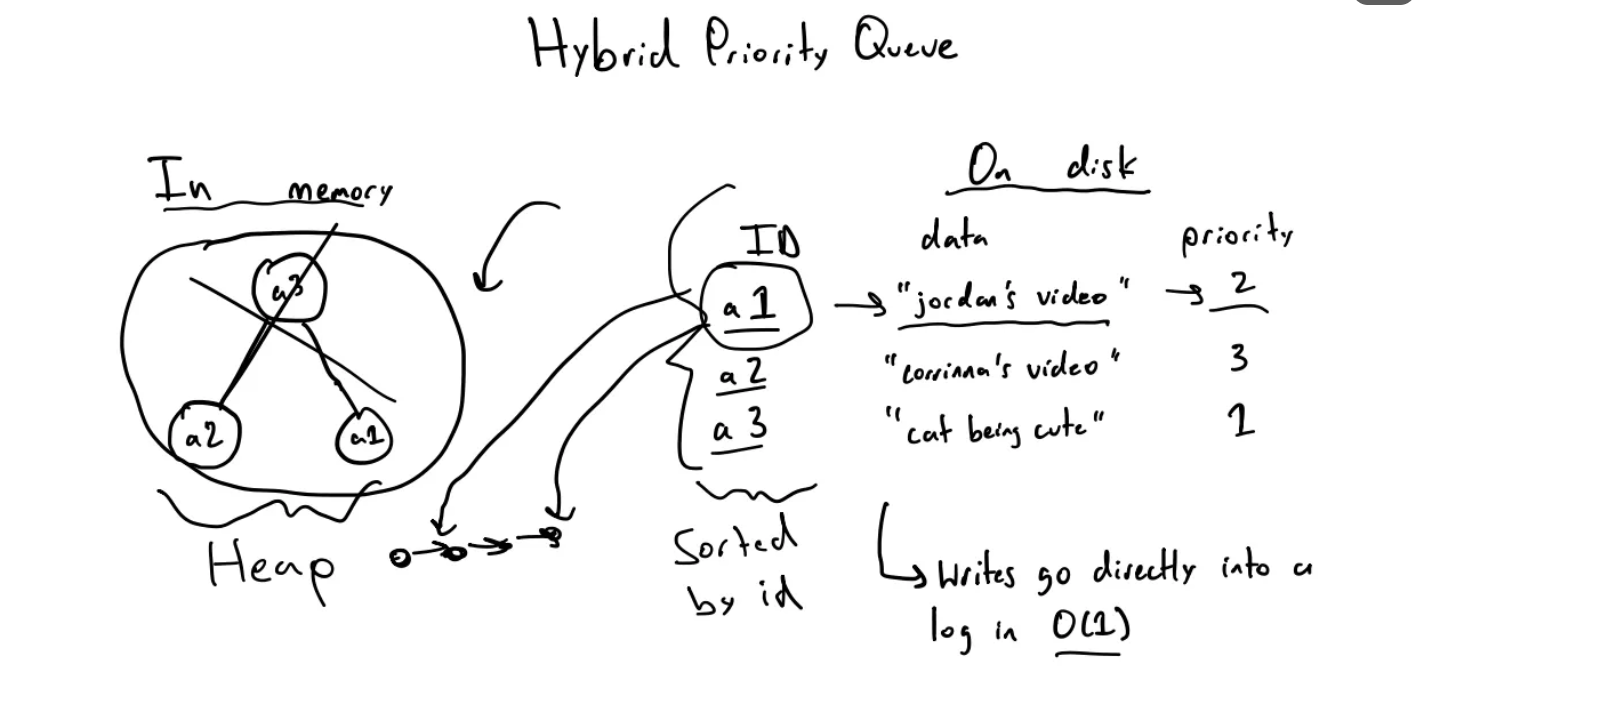 Hybrid Priority Queue
In memory
a3
a2
a1
Heap
On disk
ID data priority
a1 "jordan's video" 2
a2 "corrinna's video" 3
a3 "cat being cute" 1
Sorted
by id
Writes go directly into a
log in O(1)